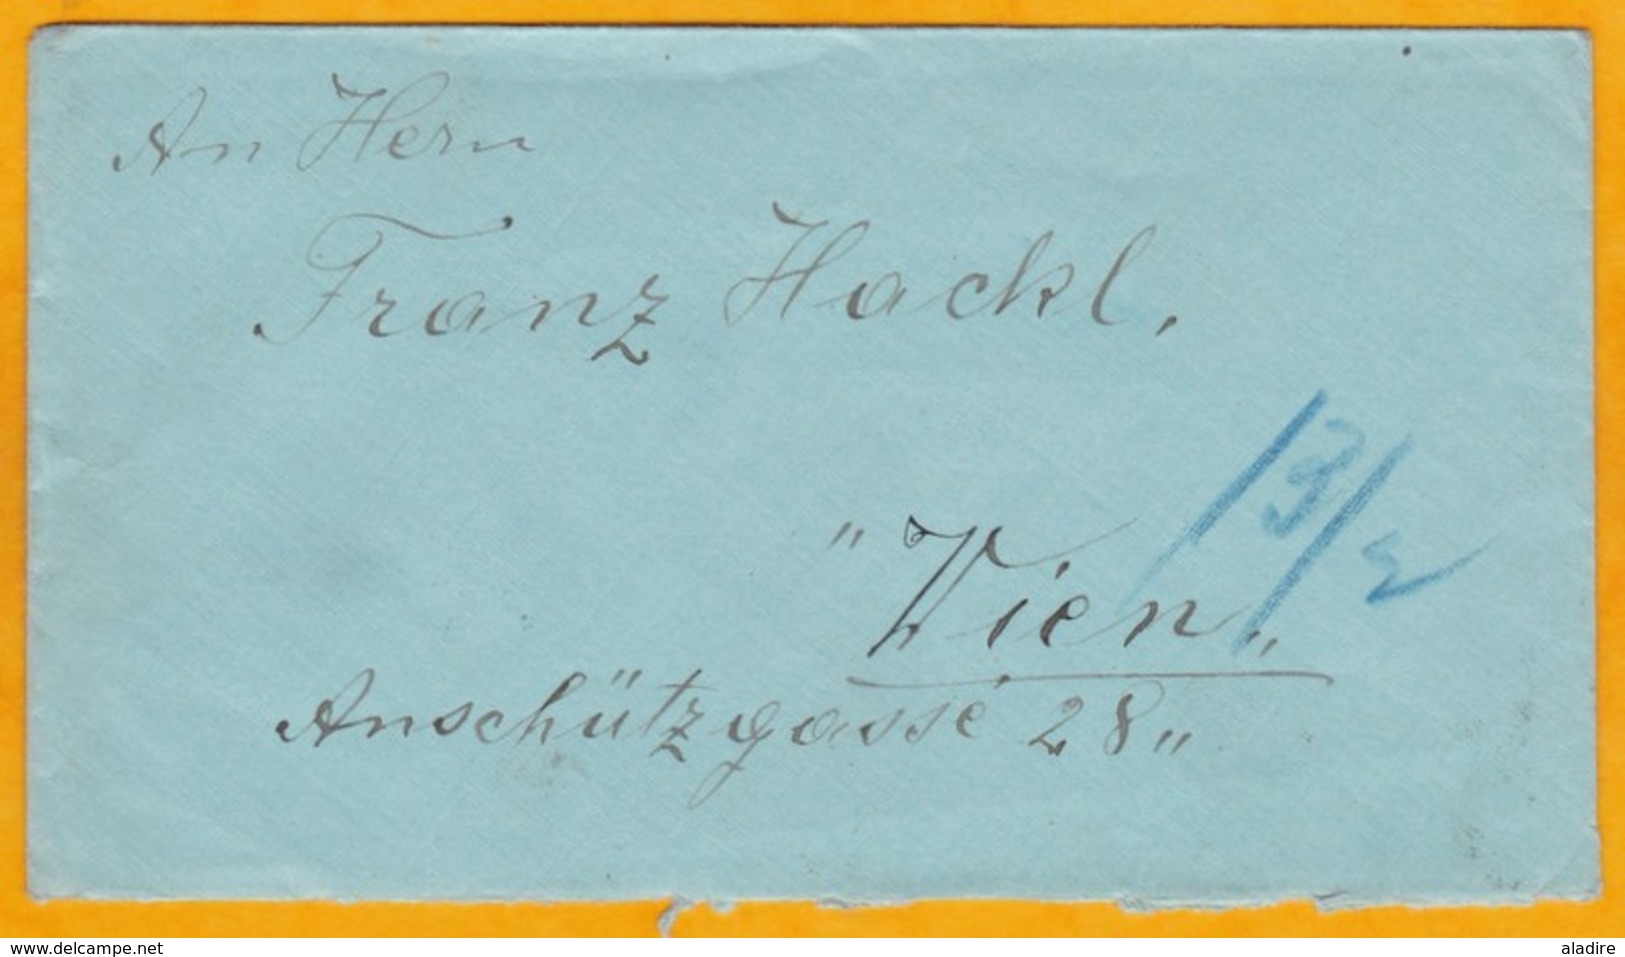 An Hern
Franz Hackl.
13/2
"Wien"
Anschützgasse 28"
www.delcampe.net
aladire